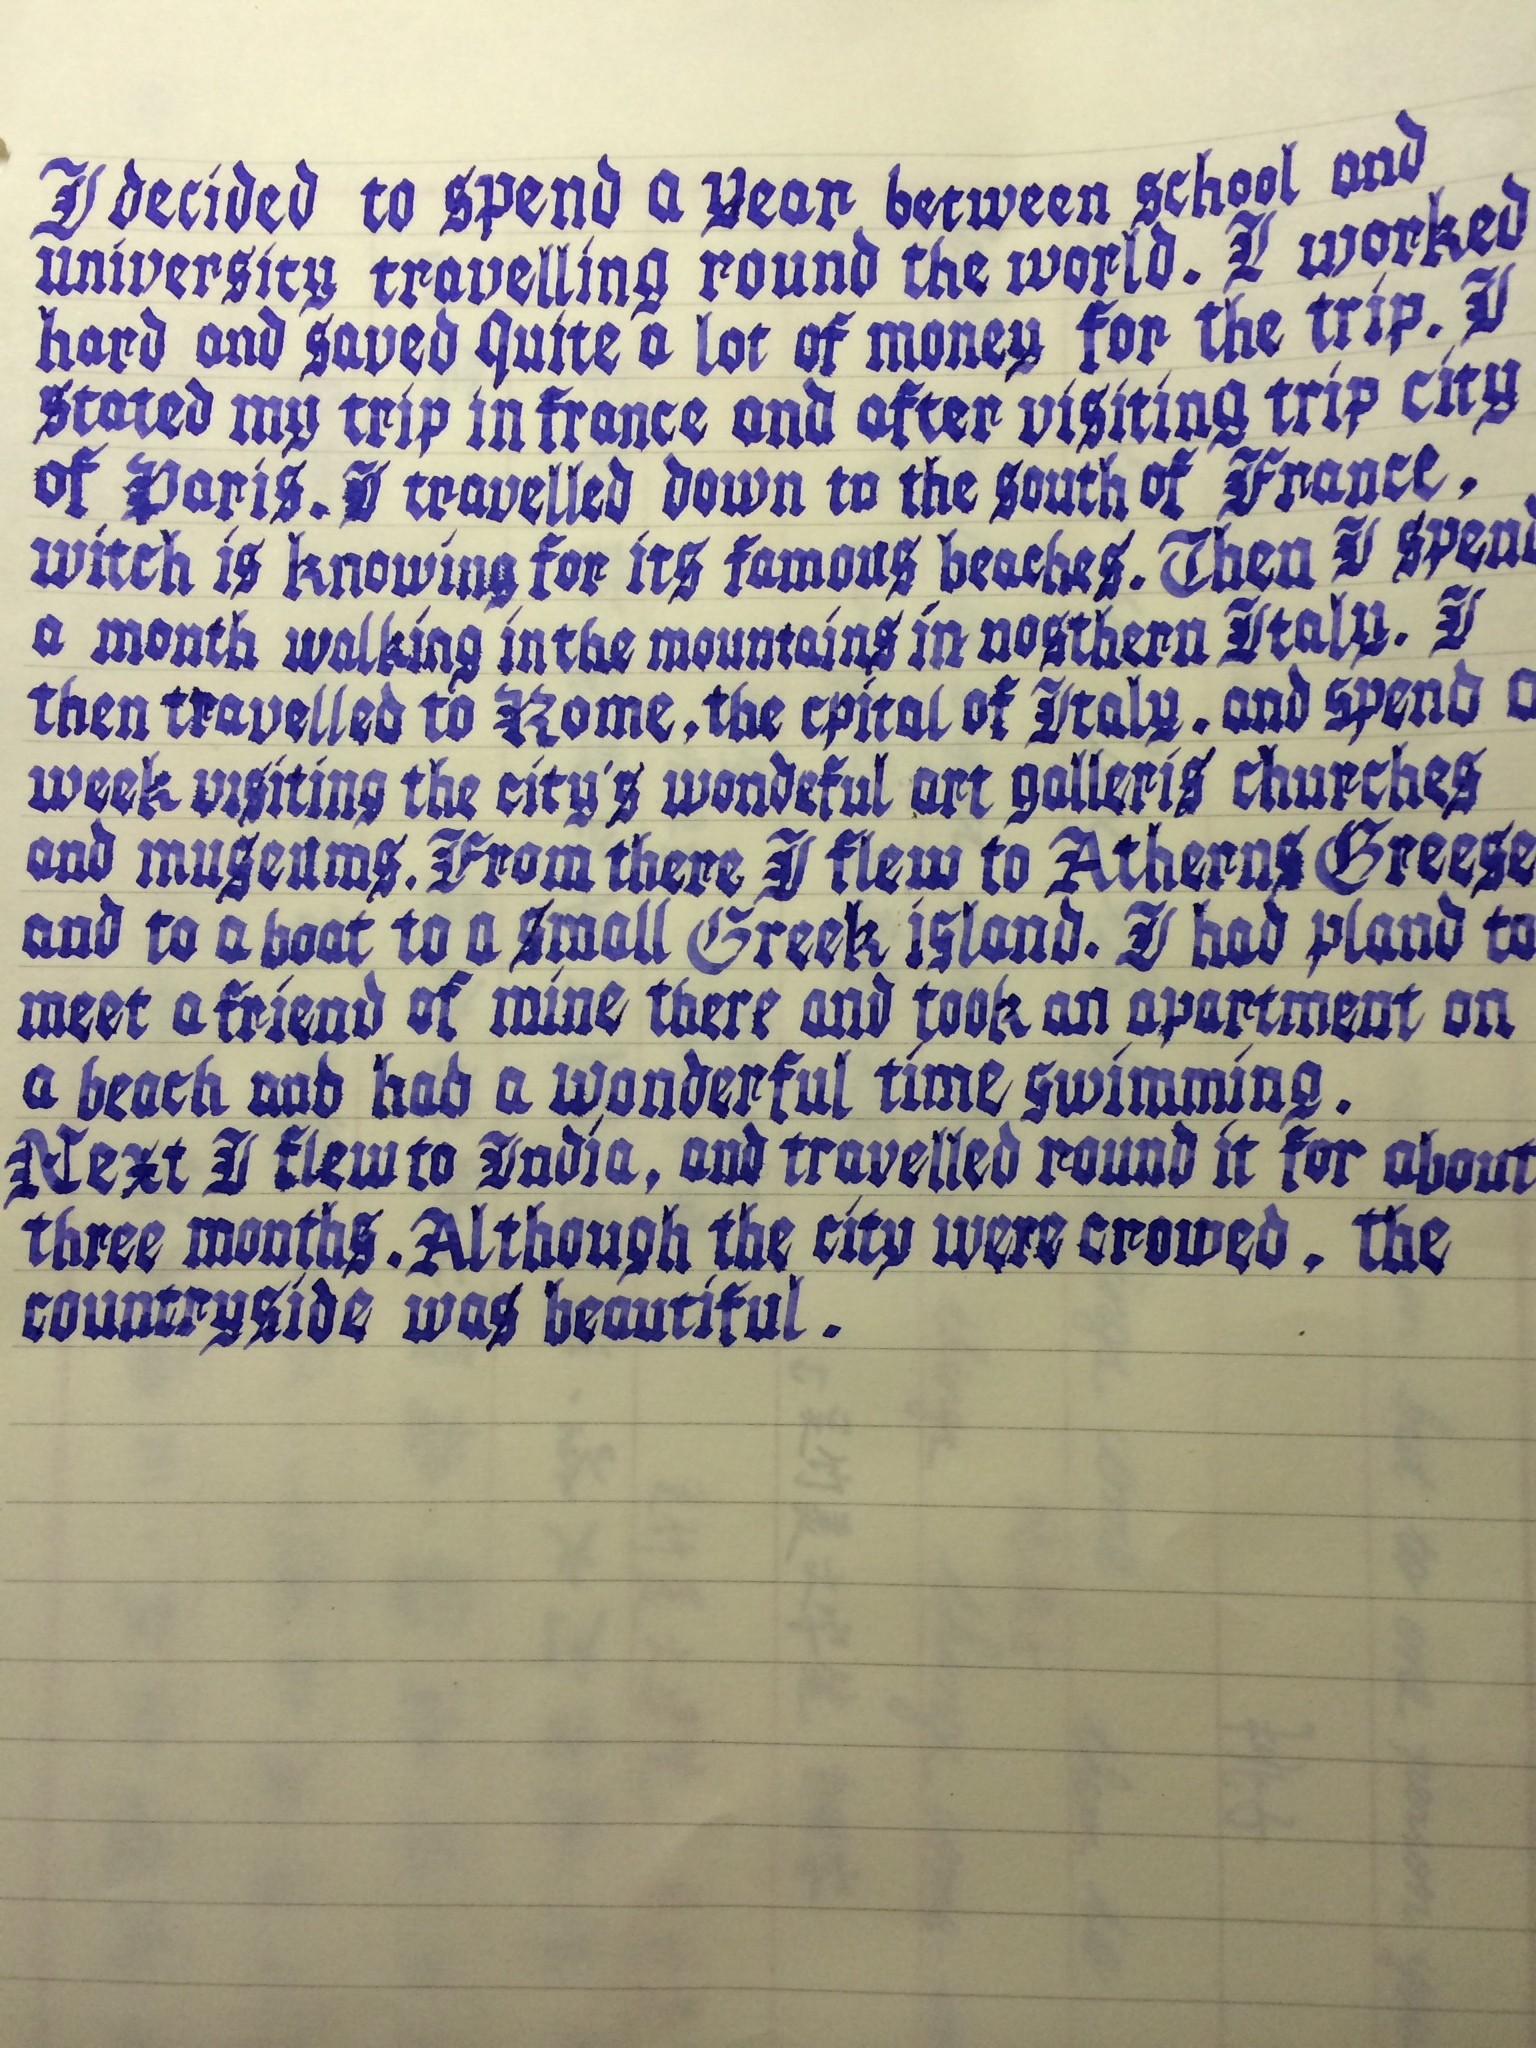 I decided to spend a Year between school and
university travelling round the world. I worked
hard and saved Quite a lot of money for the trip. I
stated my trip in france and after visiting trip city
of Paris. I travelled down to the south of France,
witch is knowing for its famous beaches. Then I spend
a month walking in the mountains in nosthern Italy. I
then travelled to Rome, the cpital of Italy, and spend a
week visiting the city's wondeful art galleris churches
and museums. From there I flew to Atherns Greese
and to a boat to a small Greek island. I had pland to
meet a friend of mine there and took an apartment on
a beach and had a wonderful time swimming.
Next I flew to India, and travelled round it for about
three months. Although the city were crowed, the
countryside was beautiful.